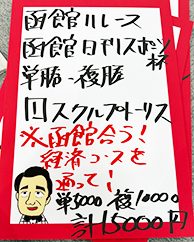 函館11レース
函館日刊スポーツ杯
単勝・複勝
①スクルプトーリス
※函館合う!
経済コースを
通って!
単5000 複10000
計15000円